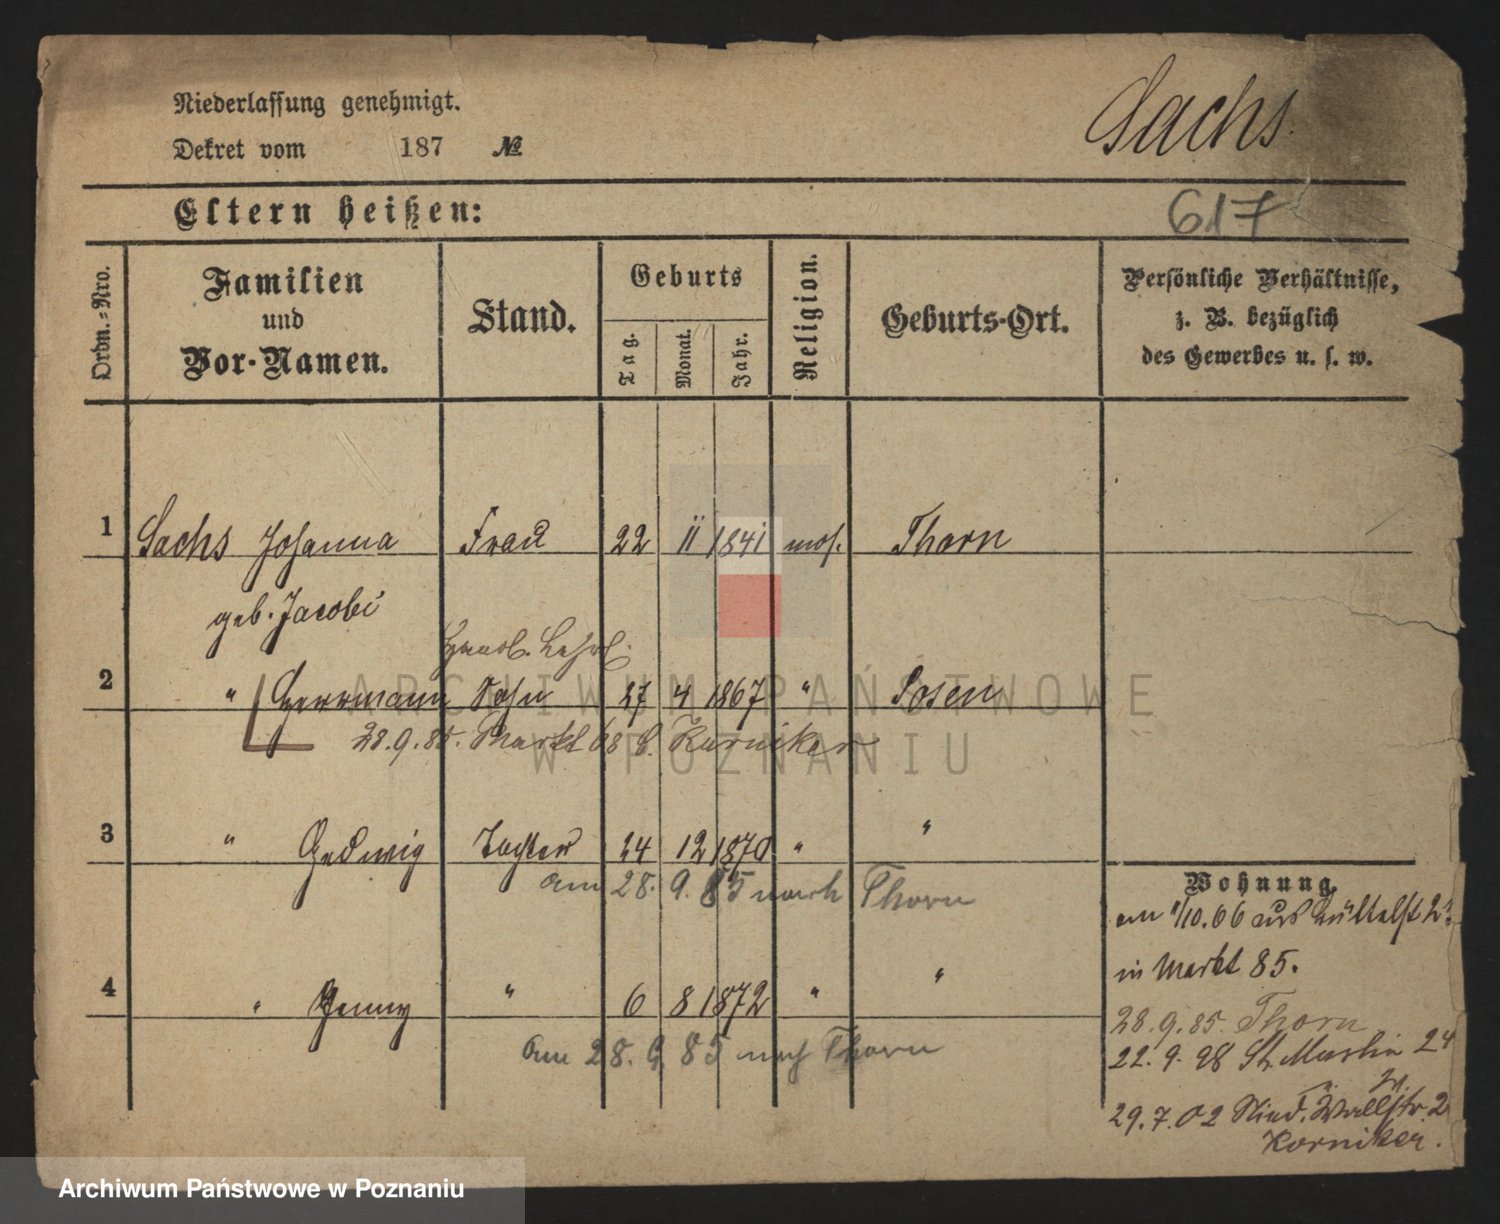 Niederlassung genehmigt.
Dekret vom 187 №
Sachs.
617
Eltern heißen:
Ordn.-Nro.
Familien und Vor-Namen.
Stand.
Geburts
Tag.
Monat.
Jahr.
Religion.
Geburts-Ort.
Persönliche Verhältnisse,
z. B. bezüglich
des Gewerbes u. s. w.
1 Sachs Johanna Frau 22 11 1841 mos. Thorn
geb. Jacobi
Handl. Lehrl.
2 " Herrmann Sohn 27 4 1867 " Posen
28.9.85. Markt 68 b. Kurniker
3 " Hedwig Tochter 24 12 1870 " "
am 28. 9. 85 nach Thorn
4 " Jenny " 6 8 1872 " "
am 28. 9. 85 nach Thorn
Wohnung.
am 1/10. 66 aus
in Markt 85.
28.9.85. Thorn
22. 9. 98 St. Martin 24
29.7.02 Nied. Wallstr. 2
Korniker.
ARCHIWUM PAŃSTWOWE
W POZNANIU
Archiwum Państwowe w Poznaniu